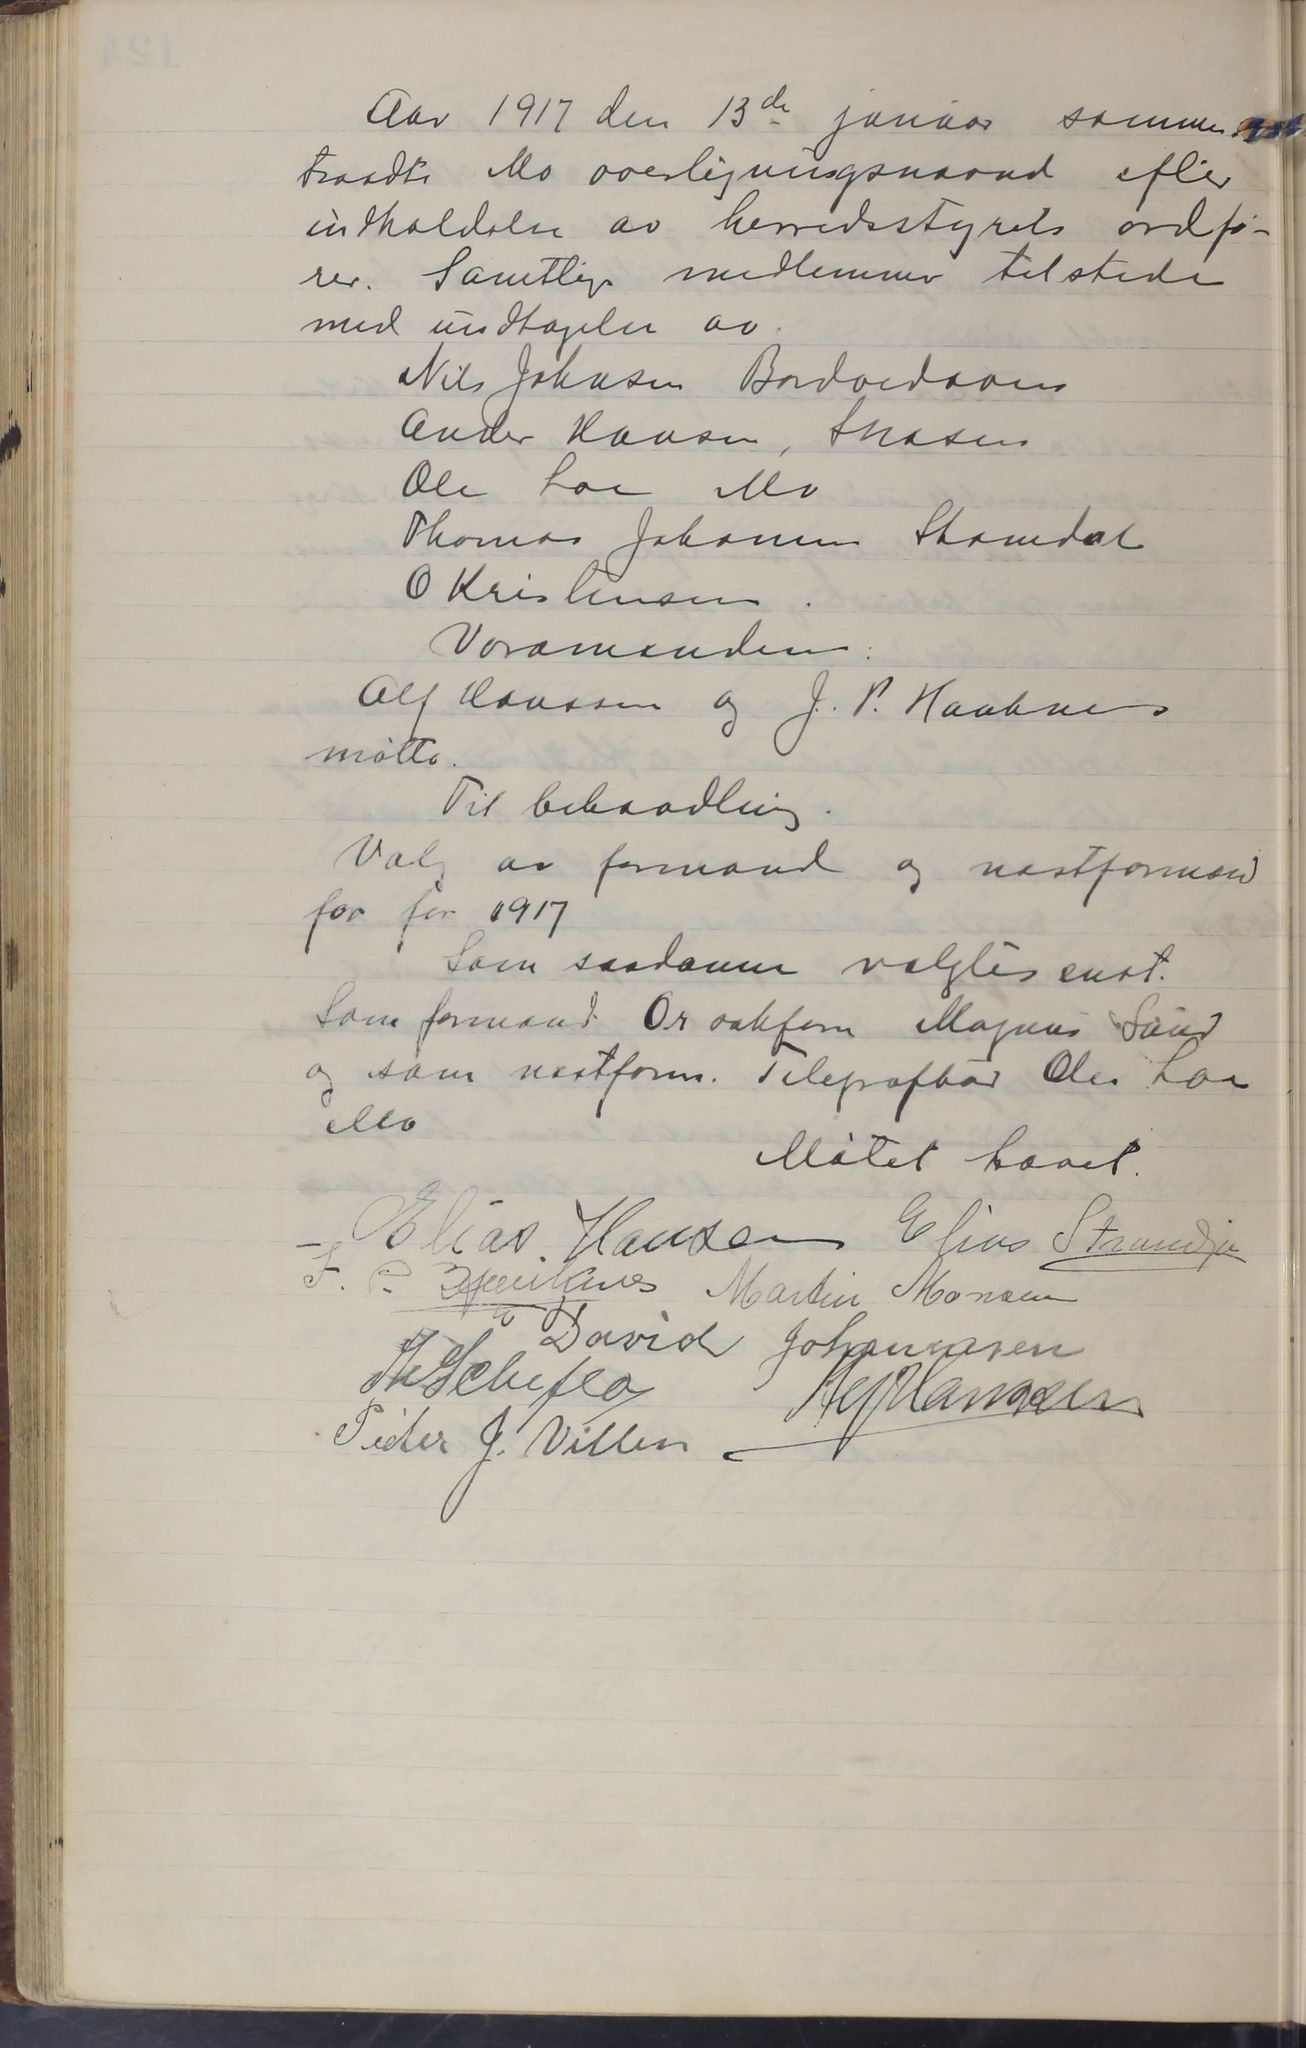 Aar 1917 den 13de januar sammen
traadte Mo overligningsnævnd efter
indkaldelse av herredsstyrets ordfø-
rer. Samtlige medlemmer tilstede
med undtagelse av.
Nils Johnsen
Ander Hansen,
Ole Loe Mo
Thomas Johansen Skamdal
O Kristensen.
Varamændene:
Alf Hanssen og J. P. Haaknes
møtte.
Til behandling.
Valg av formand og næstformand
for før 1917
Som saadanne valgtes enst.
Som formand Magnus Sund
og som næstform. Telegrafbas Ole Loe
Mo
Møtet hævet.
Elias Hansen Elias
P. Martin Monsen
David Johannesen
Alf Hanssen
Peder J. Villen